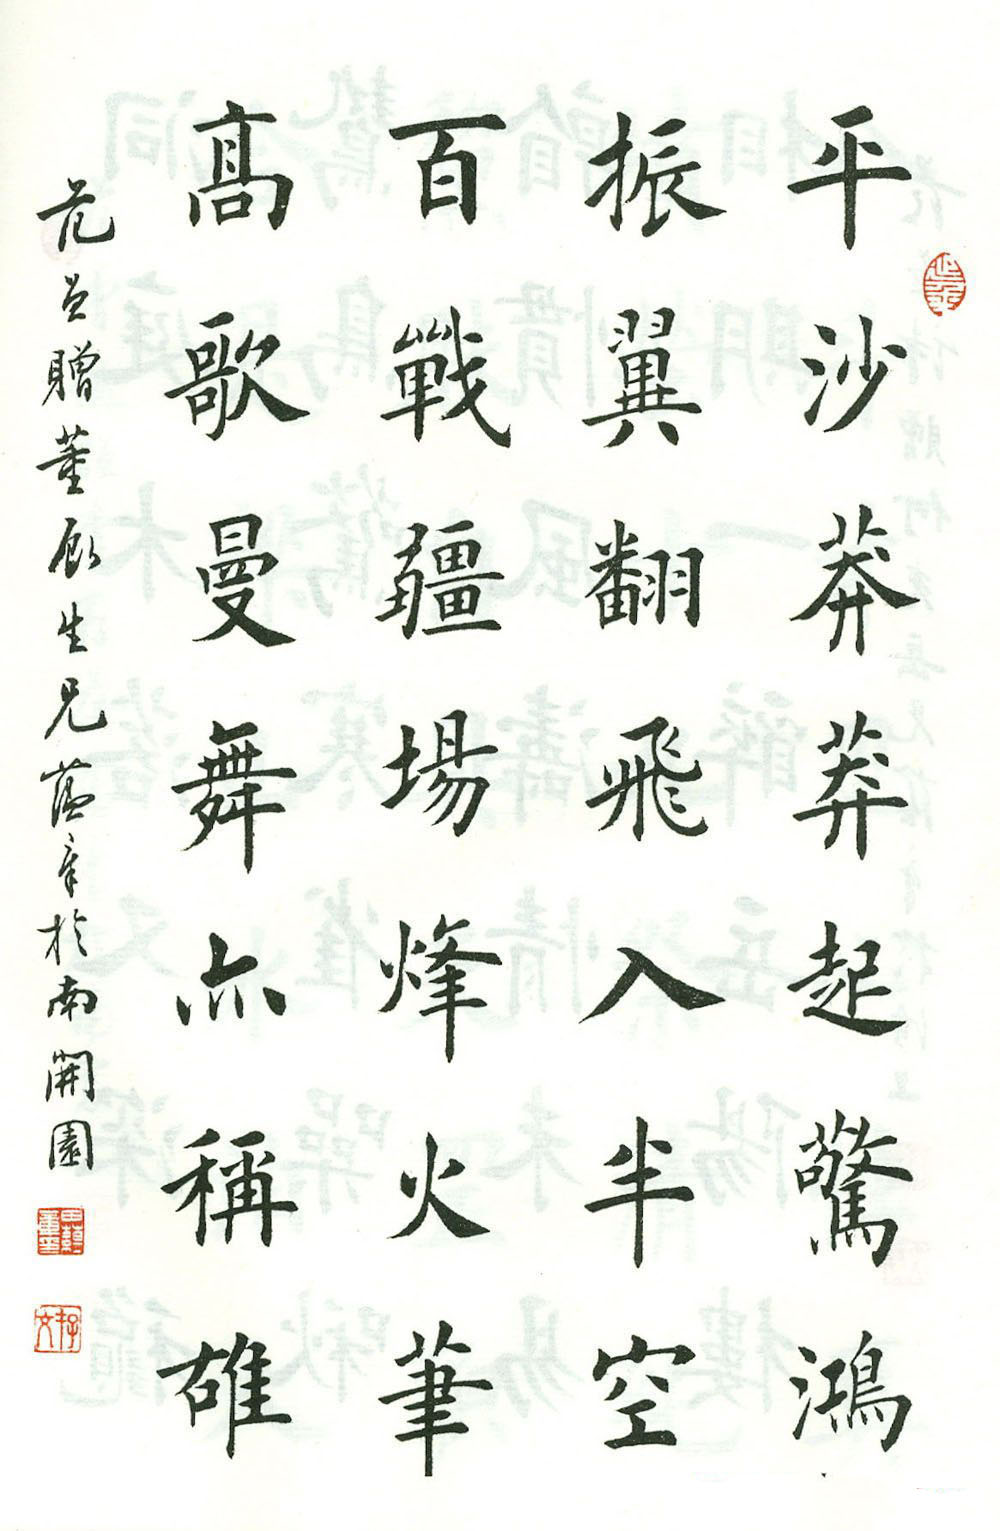 平沙莽莽起驚鴻
振翼翻飛入半空
百戰疆場烽火筆
高歌曼舞亦稱雄
范曾贈董顧生兄蘊章於南開園